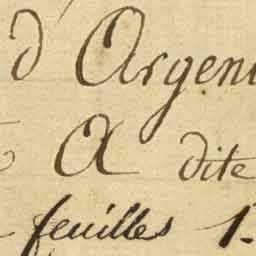 d'Argent
A dite
feuilles 1.